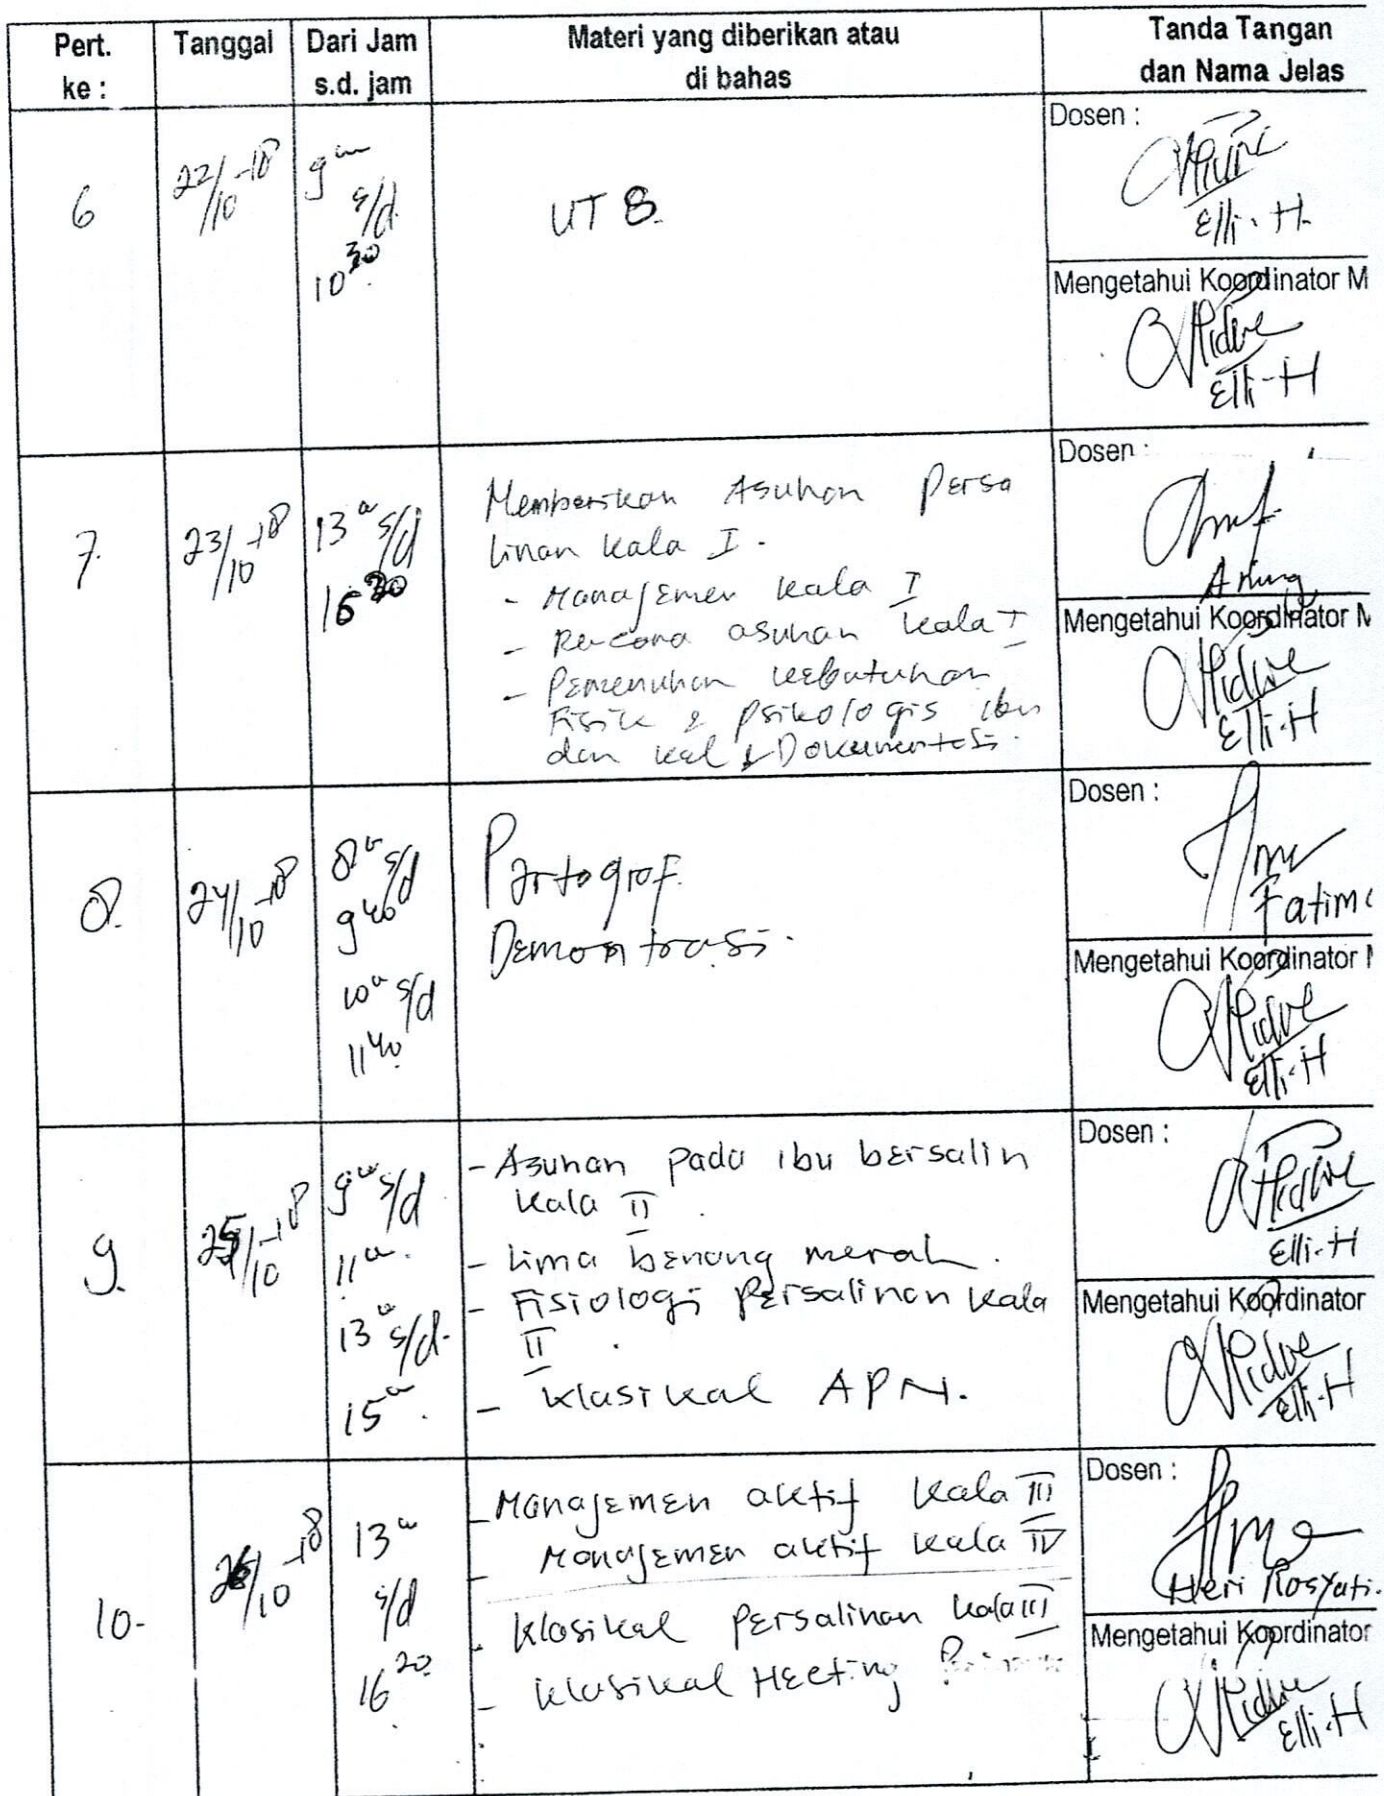 Pert. ke :
Tanggal
Dari Jam s.d. jam
Materi yang diberikan atau
di bahas
Tanda Tangan
dan Nama Jelas
6
22/10-18
9⁰⁰
s/d
10³⁰
UTS
Dosen :
Elli. H.
Mengetahui Koordinator M
Elli-H
7.
23/10-18
13⁰⁰ s/d
Memberikan Asuhan Persa
linan Kala I.
- Manajemen kala I
- Rencana asuhan kala I
- Pemenuhan kebutuhan
Fisik & psikologis ibu
dan kel & Dokumentasi.
Dosen :
Mengetahui Koordinator M
Elli-H
8.
24/10-18
8⁰⁰ s/d
9⁴⁰
10⁰⁰ s/d
11⁴⁰
Partograf.
Demontrasi.
Dosen :
Fatima
Mengetahui Koordinator
Elli-H
9.
25/10-18
9⁰⁰ s/d
11⁰⁰.
13⁰⁰ s/d.
15⁰⁰.
- Asuhan pada ibu bersalin
kala II.
- Lima benang merah.
- Fisiologi persalinan kala
II.
- Klasikal APN.
Dosen :
Elli-H
Mengetahui Koordinator
Elli-H
10-
26/10-18
13⁰⁰
s/d
16²⁰
- Manajemen aktif kala III
- Manajemen aktif kala IV
- Klasikal persalinan kala III
- Klasikal Hecting
Dosen :
Heri Rosyati.
Mengetahui Koordinator
Elli-H